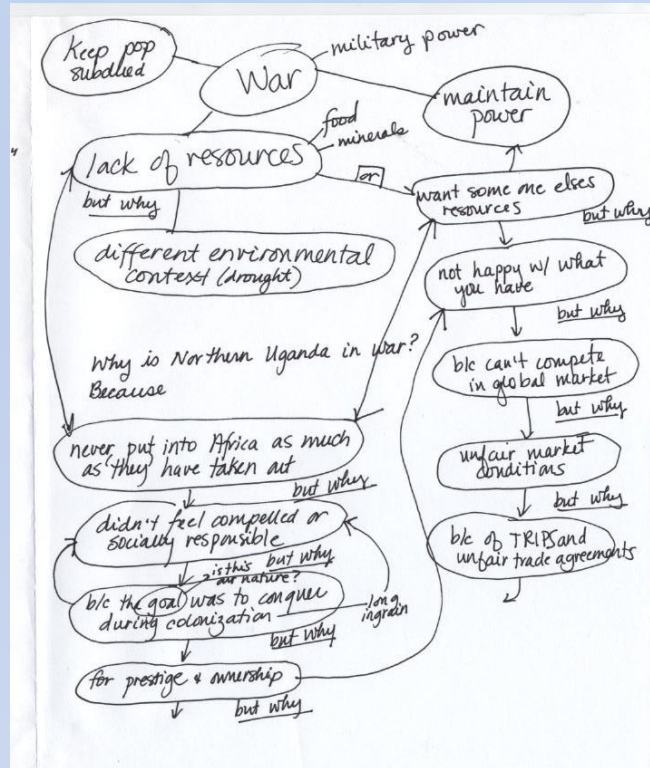 Keep pop
subdued
War
military power
maintain
power
food
minerals
lack of resources
but why
or
want some one elses
resources
but why
different environmental
context (drought)
not happy w/ what
you have
but why
Why is Northern Uganda in war?
Because
b/c can't compete
in global market
but why
never put into Africa as much
as they have taken out
but why
unfair market
conditions
but why
didn't feel compelled or
socially responsible
but why
is this
our nature?
b/c of TRIPS and
unfair trade agreements
b/c the goal was to conquer
during colonization
long
ingrain
but why
for prestige & ownership
but why